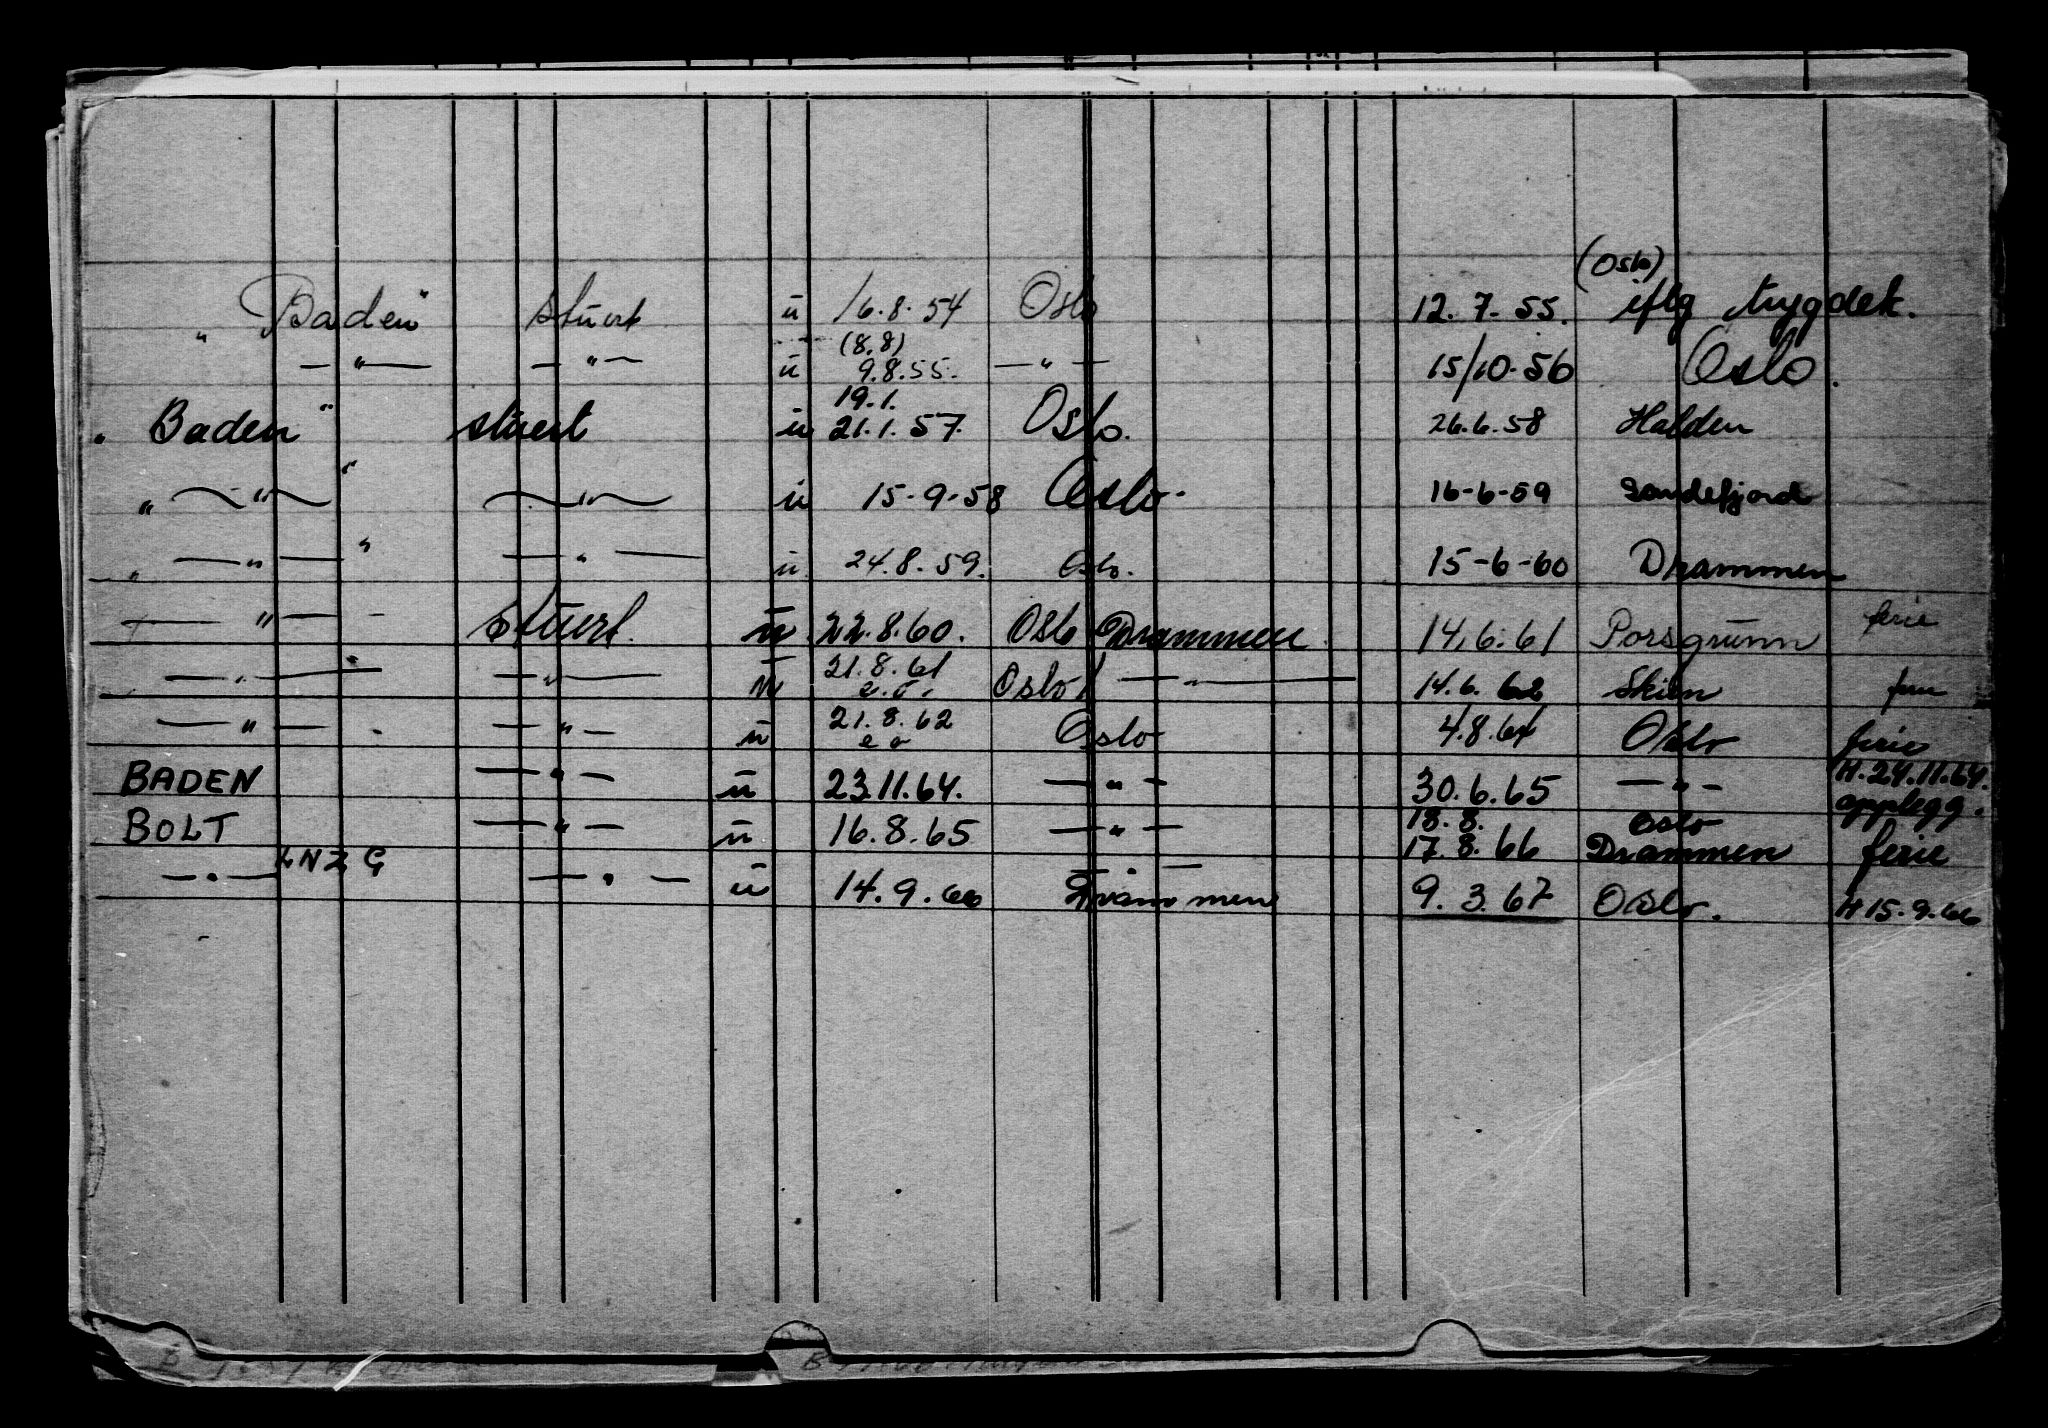 (Oslo)
„Baden" stuert u 16.8.54 Oslo 12.7.55. iflg trygdek.
(8.8)
— " — — " — u 9.8.55. — " — 15/10-56 Oslo.
19.1.
„Baden" stuert u 21.1.57. Oslo. 26.6.58 Halden
„ — " — " — " — u 15-9-58 Oslo. 16-6-59 Sandefjord
„ — " — " — " — u 24.8.59. Oslo. 15-6-60 Drammen
— " — stuert. u 22.8.60. Oslo Drammen. 14.6.61 Porsgrunn ferie
— " — — " — u 21.8.61 Oslo/ — " — 14.6.62 Skien ferie
e.o.
— " — — " — u 21.8.62 Oslo 4.8.64 Oslo ferie
e o
BADEN — " — u 23.11.64. — " — 30.6.65 — " — H.24.11.64.
opplegg.
18.8. Oslo
BOLT — " — u 16.8.65 — " — 17.8.66 Drammen ferie
LNZG
— " — — " — u 14.9.66 Drammen 9.3.67 Oslo. H 15.9.66